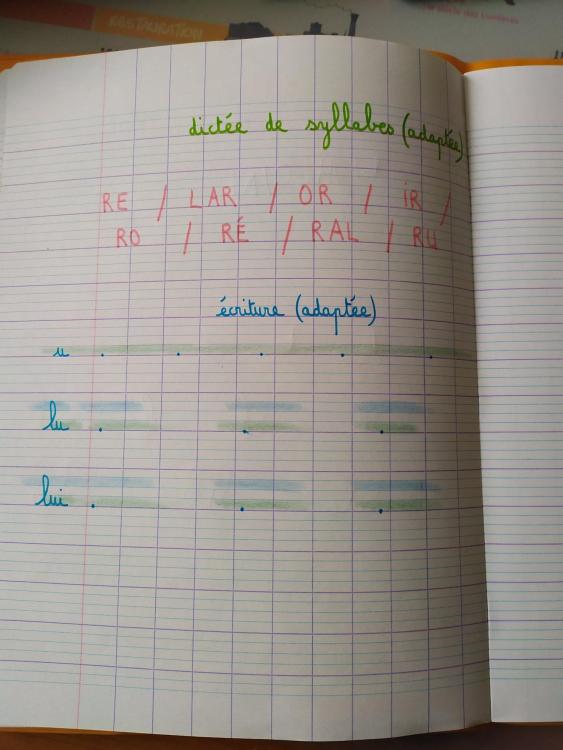 RESTAURATION
dictée de syllabes (adaptée)
RE / LAR / OR / iR /
RO / RÉ / RAL / RU
écriture (adaptée)
u . . . . .
lu . . .
lui . . .